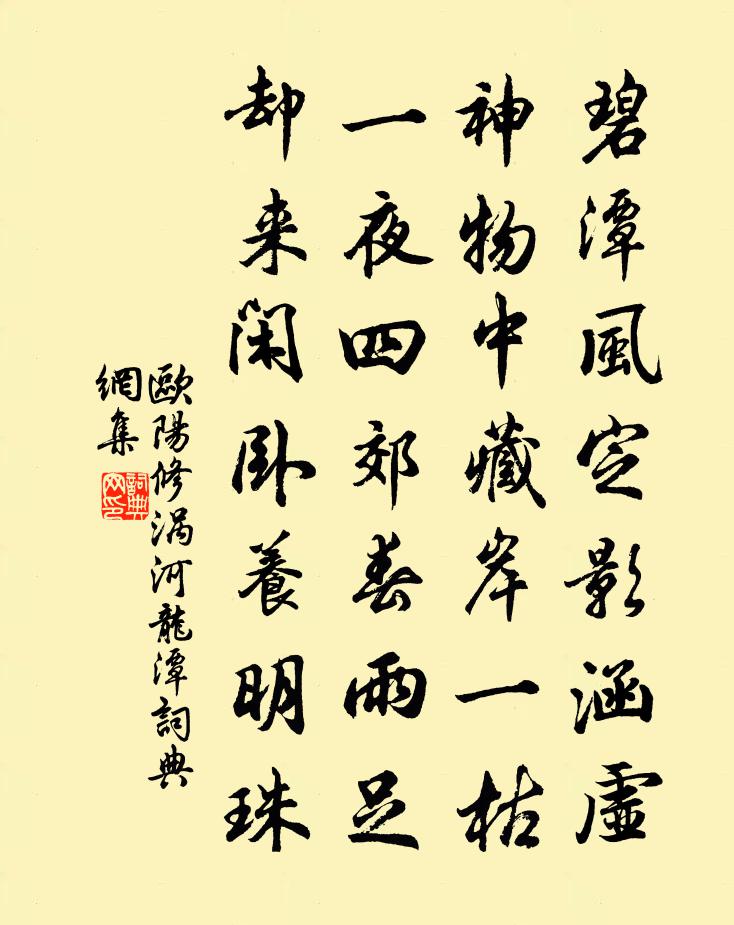 碧潭風定影涵虛
神物中藏岸一枯
一夜四郊春雨足
却来閑卧養明珠
歐陽修涡河龍潭詞典
網集
詞典
网印